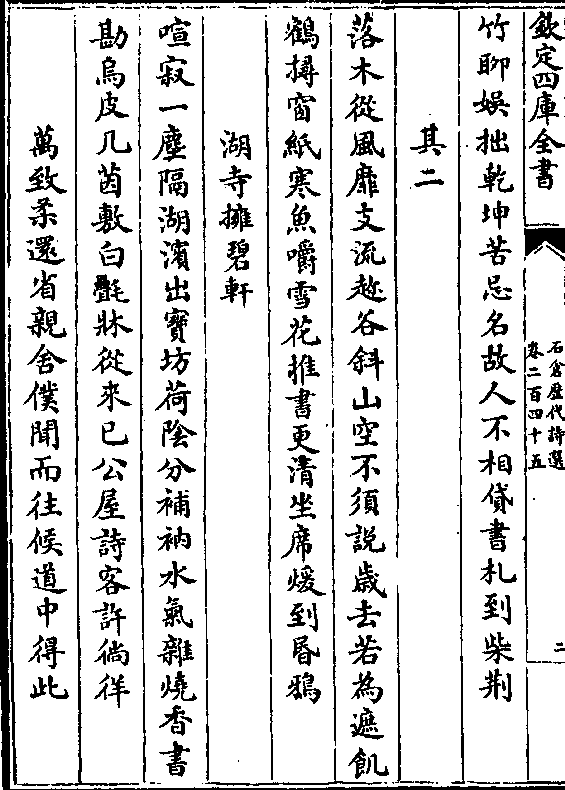 欽定四庫全書
石倉歷代詩選
卷二百四十五
二
竹聊娯拙乾坤苦忌名故人不相貸書札到柴荆
其二
落木從風靡支流趂谷斜山空不須説歳去若為遮飢
鶴撏窗紙寒魚嚼雪花推書更清坐席煖到昏鴉
湖寺擁碧軒
喧寂一塵隔湖濱出寶坊荷陰分補衲水氣雜燒香書
勘烏皮几茵敷白㲲牀從來已公屋詩客許徜徉
萬致柔還省親舍僕聞而往候道中得此